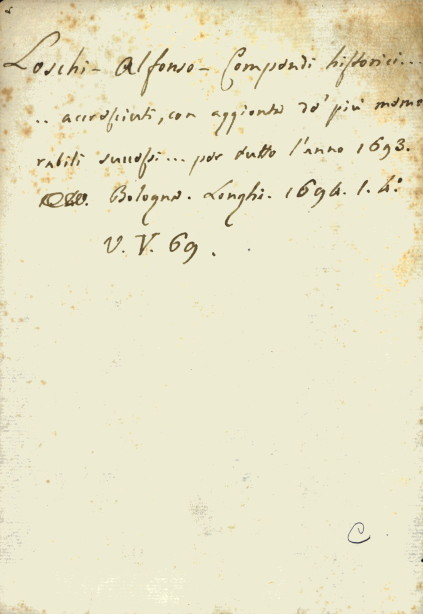 Loschi - Alfonso - Compendi historici...
.. accresciuti, con aggionta de' più memo
rabili successi... per tutto l'anno 1693.
Bologna. Longhi. 1694. 1. 4°
V. V. 69.
C